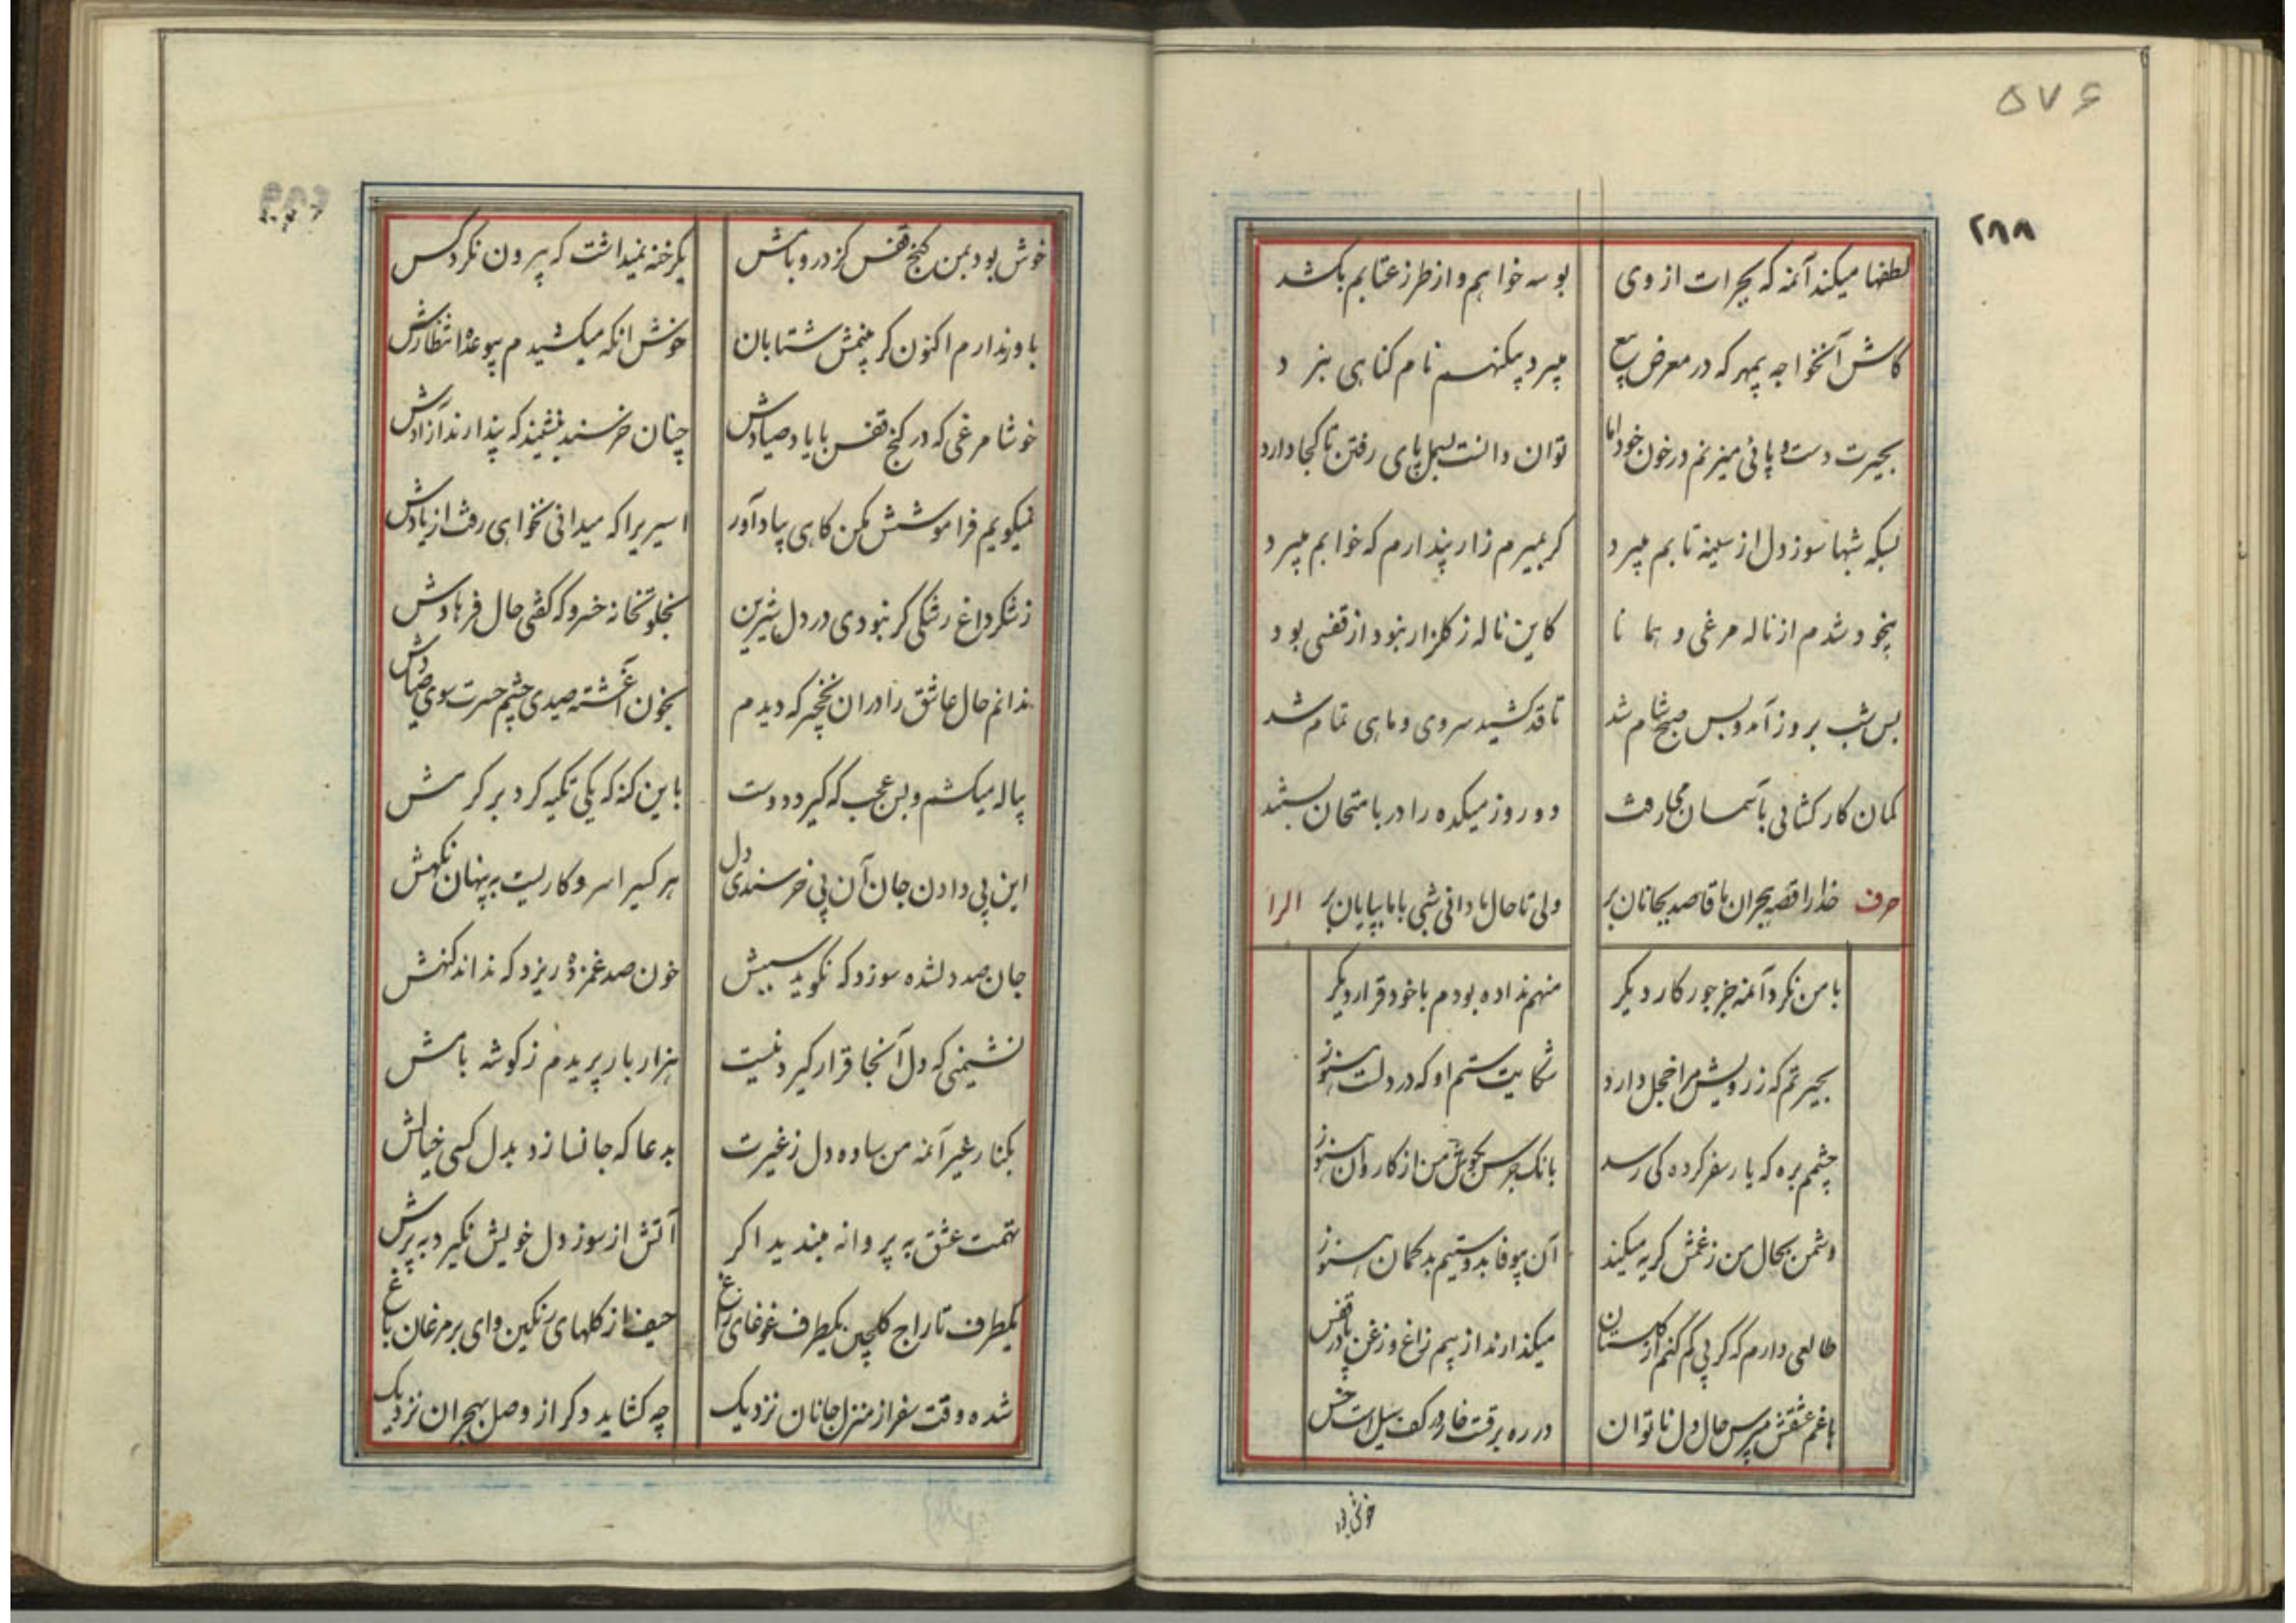 ۵۷۶
۲۸۸
لطفها میکند آنمه که بجرات از وی بوسه خواهم و از طرز عتابم بکشد
کاش آنخواجه بیمهر که در معرض بیع میبرد بیکنهم نام کناهی نبرد
بحیرت دست و پائی میزنم در خون خود اما توان دانست بسمل پای رفتن تا کجا دارد
بسکه شبها سوز دل از سینه تابم میبرد کر بمیرم زار پندارم که خوابم میبرد
بیخود شدم از ناله مرغی و همانا کاین ناله ز کلزار نبود از قفسی بود
بس شب بروز آمد و بس صبح شام شد تا قد کشید سروی و ماهی تمام شد
کمان کار کشائی بآسمان می رفت دو روز میکده را در بامتحان بستند
حرف خدا را قصه هجران ما قاصد بجانان بر ولی تا حال ما دانی شبی با ما بپایان بر الرا
با من نکرد آنمه جز جور کار دیگر منهم نداده بودم با خود قرار دیگر
بحیرتم که ز رویش مرا خجل دارد شکایت ستم او که در دلست هنوز
چشمم بره که یار سفر کرده کی رسد بانک جرس بکوش من از کاروان هنوز
دشمن بحال من ز غمش کریه میکند آن بیوفا بدوستیم بدکمان هنوز
طالعی دارم که کر پی کم کنم از کلستان میکذارند از پیم زاغ و زغن پا در قفس
با غم عشقش مپرس حال دل ناتوان در ره برقست خار در کف سیل است خس
خوش بود
خوش بود بمن کنج قفس کز در و بامش یکرخنه نمیداشت که بیرون نکرد کس
باور ندارم اکنون کر بینمش شتابان خوش انکه میکشیدم بیوعده انتظارش
خوشا مرغی که در کنج قفس با یاد صیادش چنان خرسند بنشیند که پندارند آزادش
نمیکویم فراموشش مکن کاهی بیاد آور اسیریرا که میدانی نخواهی رفت از یادش
ز شکر داغ رشکی کر نبودی در دل شیرین بخلوتخانه خسرو که کفتی حال فرهادش
ندانم حال عاشق را در ان نخچیر که دیدم بخون آغشته صیدی چشم حسرت سوی صیادش
پیاله میکشم و بس عجب که کیرد دوست باین کنه که یکی تکیه کرد بر کرمش
این پی دادن جان آن پی خرسندی دل هر کسیرا سر و کاریست به پنهان نکهش
جان صد دلشده سوزد که نکوید سببش خون صد غمزده ریزد که نداند کنهش
نشیمنی که دل آنجا قرار کیرد نیست هزار بار پریدم ز کوشه بامش
بکنار غیر آنمه من ساده دل ز غیرت بدعا که جا نسازد بدل کسی خیالش
تهمت عشق به پروانه مبندید اکر آتش از سوز دل خویش نکیرد به پرش
یکطرف تاراج کلچین یکطرف غوغای زاغ حیف از کلهای رنکین وای بر مرغان باغ
شده وقت سفر از منزل جانان نزدیک چه کشاید دکر از وصل بهجران نزدیک